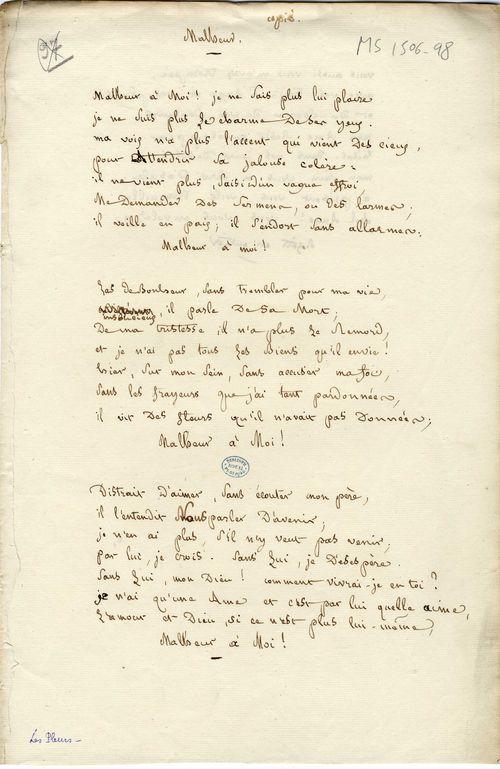 copié.
97
Malheur.
MS 1506-98
Malheur à Moi ! je ne sais plus lui plaire
je ne suis plus le charme De ses yeux.
ma voix n'a plus l'accent qui vient Des cieux,
pour attendrir sa jalouse colère ;
il ne vient plus, saisi d'un vague effroi,
Me Demander Des sermens, ou Des larmes ;
il veille en paix ; il s'endort sans allarmes :
Malheur à moi !
Las de bonheur, sans trembler pour ma vie,
insoucieux
il parle De sa Mort ;
De ma tristesse il n'a plus le Remord,
et je n'ai pas tous les biens qu'il envie !
hier, sur mon sein, sans accuser ma foi,
sans les frayeurs que j'ai tant pardonnées,
il vit Des fleurs qu'il n'avait pas Données ;
Malheur à Moi !
Distrait D'aimer, sans écouter mon père,
il l'entendit Nous parler D'avenir ;
je n'en ai plus, s'il n'y veut pas venir ;
par lui, je crois. sans lui, je Désespère.
sans lui, mon Dieu ! comment vivrai-je en toi ?
je n'ai qu'une Ame et c'est par lui quelle aime,
L'amour et Dieu, si ce n'est plus lui-même,
Malheur à Moi !
Les Pleurs -